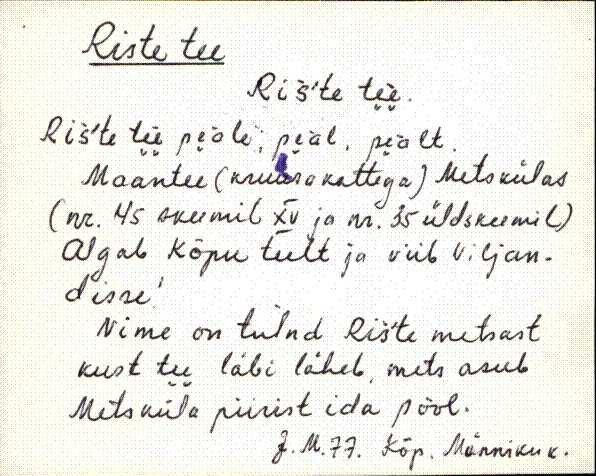 Riste tee
Riš'te te̮e̮.
Riš'te te̮e̮ pe̮äle, pe̮äl, pe̮ält.
Maantee (kruusakattega) Metskülas
(nr. 45 skeemil XV ja nr. 35 üldskeemil)
Algab Kõpu teelt ja viib Viljan-
disse!
Nime on tulnd Riš'te metsast
kust te̮e̮ läbi läheb, mets asub
Metsküla piirist ida pool.
J. M. 77. Kõp. Männikuk.